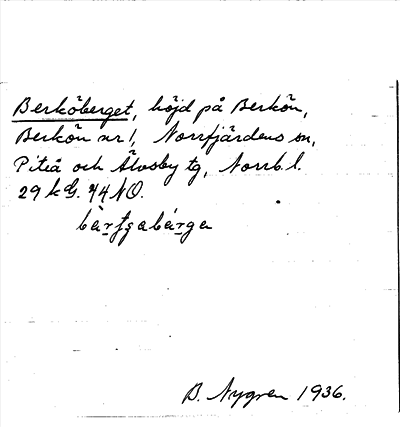 Berköberget, höjd på Berkön,
Berkön nr 1, Norrfjärdens sn,
Piteå och Älvsby tg, Norrb. l.
29 k G. 74 NO.
B. Nygren 1936.